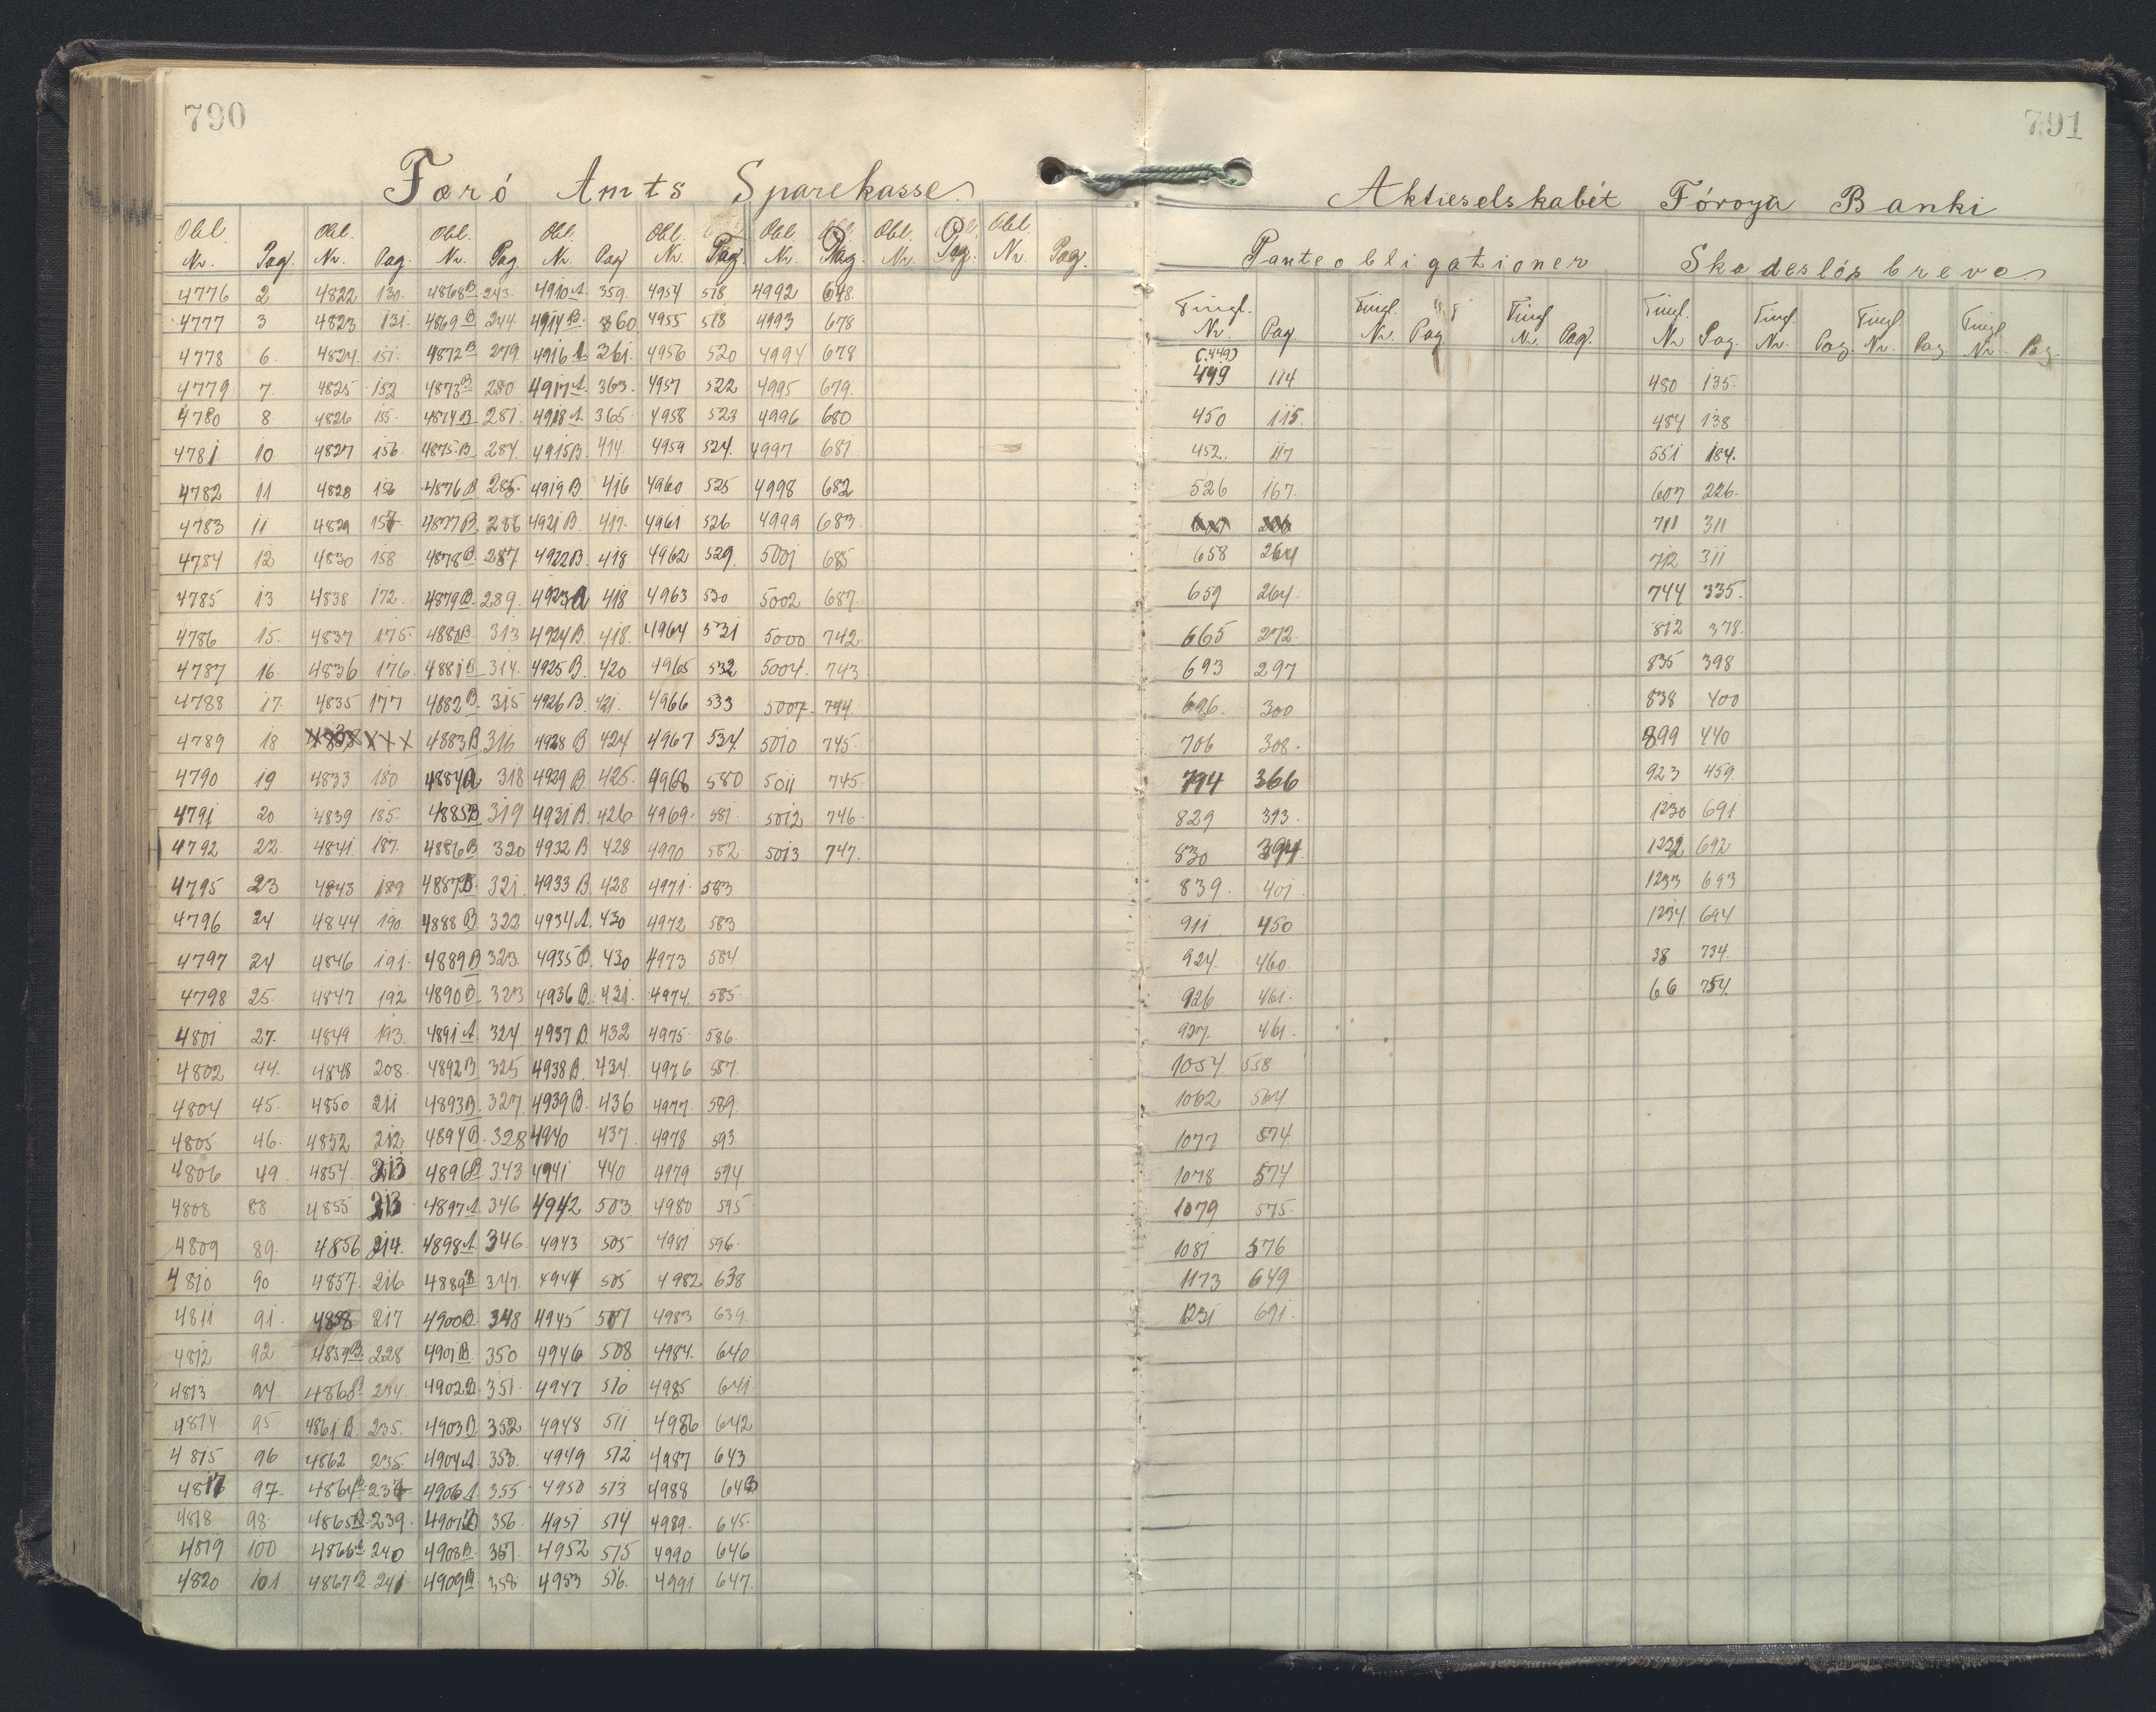 790
Færó Amts Sparekasse
Obl. Obl. Obl. Obl. Obl. Obl. Obl. Obl.
Nr. Pag. Nr. Pag. Nr. Pag. Nr. Pag. Nr. Pag. Nr. Pag. Nr. Pag. Nr. Pag.
4776 2 4822 130. 4868B 243. 4910A 359. 4954 518 4992 678.
4777 3 4823 131. 4869B 244 4914B. 360 4955 518 4993 678
4778 6. 4824. 151. 4872B 279 4916A. 361. 4956 520 4994 678
4779 7. 4825 152 4873B 280 4917A. 363. 4957 522 4995 679.
4780 8. 4826 155. 4874B 281. 4918A. 365. 4958 523 4996 680
4781 10 4827 156. 4875.B. 284. 4915B. 414. 4959 524. 4997 681
4782 11 4828 156 4876B. 285. 4919B 416 4960 525 4998 682
4783 11 4829 157 4877B. 286 4921B. 417. 4961 526 4999 683.
4784 12 4830 158 4878B 287 4922B. 418 4962 529. 5001 685
4785 13 4838 172. 4879B. 289. 4923A 418 4963 530 5002 687.
4786 15. 4837 175. 4880B. 313 4924B. 418. 4964 531 5000 742.
4787 16. 4836 176. 4881B 314. 4925B. 420 4965 532 5004. 743.
4788 17. 4835 177 4882B. 315 4926B. 421. 4966 533 5007. 744.
4789 18 4883B 316 4928B 424 4967 534. 5010 745.
4790 19 4833 180 4884A 318 4929B. 425. 4968 580 5011 745.
4791 20 4839 185. 4885B 319 4931B. 426 4969. 581. 5012 746.
4792 22. 4841. 187. 4886B 320 4932B 428 4970 582 5013 747.
4795 23 4843 189 4887B. 321. 4933B. 428 4971. 583
4796 24 4844 190. 4888B. 322 4934A. 430 4972 583
4797 24 4846 191. 4889B 323. 4935B. 430 4973 584
4798 25. 4847 192 4890B. 323 4936B. 431. 4974. 585.
4801 27. 4849 193. 4891A. 324. 4937B. 432 4975. 586.
4802 44. 4848 208. 4892B 325 4938B. 434. 4976 587.
4804 45. 4850 211 4893B. 327. 4939B. 436 4977. 589.
4805 46. 4852 212 4894B. 328 4940 437. 4978 593.
4806 49. 4854. 213 4896B. 343 4941 440 4979 594.
4808 88 4855 213 4897A. 346 4942 503. 4980 595
4809 89. 4856 214. 4898A. 346. 4943 505 4981 596.
4810 90 4857. 216 4889B 347. 4944 505 4982 638
4811 91. 4858 217 4900B. 348 4945 507 4983 639.
4812 92. 4859B. 228 4901B. 350 4946 508 4984. 640
4813 94. 4860B 234. 4902B. 351. 4947 510 4985 641
4814 95 4861B. 235. 4903B. 352 4948 511 4986 642
4815 96 4862 235 4904A. 353. 4949 512 4987 643
4817 97. 4864B 237 4906A. 355 4950 513 4988 643
4818 98. 4865B. 239. 4907B 356. 4951 514 4989. 645.
4819 100 4866B 240 4908B. 357. 4952 515 4990 646
4820 101 4867B. 241 4909B 358 4953 516. 4991 647.
791
Aktieselskabèt Fóroya Banki
Panteobligationer Skadeslós breve
Tingl. Tingl. Tingl. Tingl. Tingl. Tingl. Tingl.
Nr. Pag. Nr. Pag Nr. Pag. Nr Pag. Nr. Pag. Nr. Pag Nr. Pag.
(449)
449 114 480 135.
450 115. 484 138
452. 117 551 184.
526 167. 607 226.
711 311
658 264 712 311
659 264. 744 335.
665 272. 812 378.
693 297 835 398
696. 300 838 400
706 308. 899 440
794 366 923 459.
829 393. 1230 691
830 394 1232 692
839. 401 1233 693
911 450 1234. 694
924. 460. 38 734.
926 461. 66 754.
927. 461.
1054. 558
1062 564.
1077 574.
1078 574
1079 575.
1081 576
1173 649
1231 691.